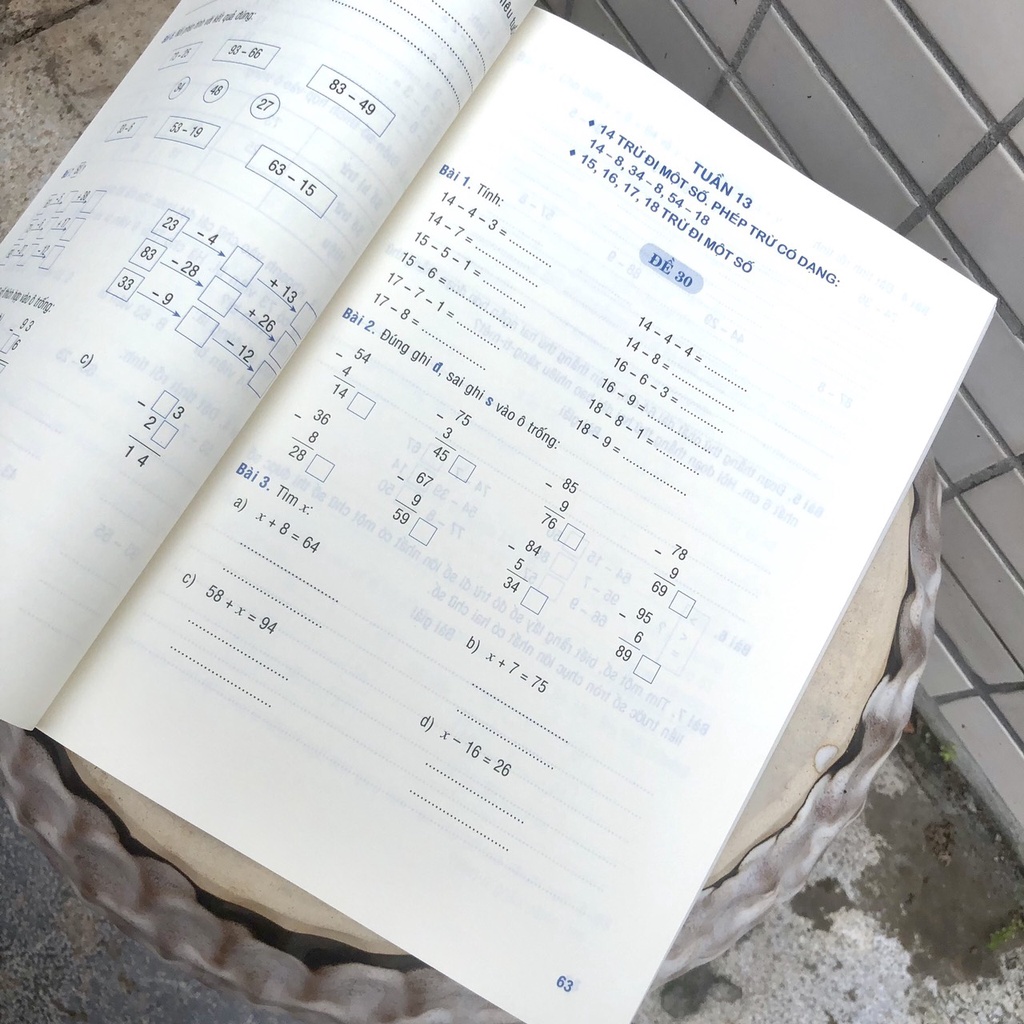 93 – 66
83 – 49
34
48
27
53 – 19
63 – 15
23 – 4 + 13
83 – 28 + 26
33 – 9 – 12
c)
– 3
2
14
TUẦN 13
♦ 14 TRỪ ĐI MỘT SỐ. PHÉP TRỪ CÓ DẠNG:
14 – 8, 34 – 8, 54 – 18
♦ 15, 16, 17, 18 TRỪ ĐI MỘT SỐ
ĐỀ 30
Bài 1. Tính:
14 – 4 – 3 = ..........
14 – 4 – 4 = ..........
14 – 7 = ..........
14 – 8 = ..........
15 – 5 – 1 = ..........
16 – 6 – 3 = ..........
15 – 6 = ..........
16 – 9 = ..........
17 – 7 – 1 = ..........
18 – 8 – 1 = ..........
17 – 8 = ..........
18 – 9 = ..........
Bài 2. Đúng ghi đ, sai ghi s vào ô trống:
– 54
4
14
– 75
3
45
– 85
9
76
– 78
9
69
– 36
8
28
– 67
9
59
– 84
5
34
– 95
6
89
Bài 3. Tìm x:
a) x + 8 = 64
b) x + 7 = 75
c) 58 + x = 94
d) x – 16 = 26
63